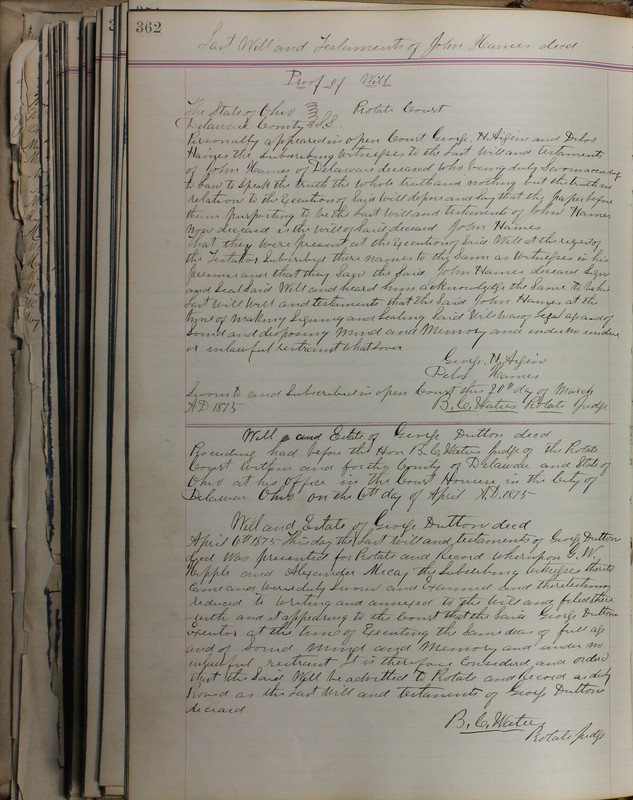 362
Last Will and Testaments of John Hames decd
Proof of Will
The State of Ohio } Probate Court
Delaware County } SS.
Personally appeared in open Court George H. Aigin and Delos
Hames the Subscribing Witnesses to the Last Will and testaments
of John Hames of Delaware deceased who being duly Sworn according
to Law to Speak the truth the whole truth and nothing but the truth in
relation to the Execution of Said Will depose and Say that the paper before
them purporting to be the Last Will and testaments of John Hames
Now deceased is the Will of Said deceased John Hames
that they were present at the Execution of Said Will at the request of
the Testator Subscribed there names to the Same as Witnesses in his
presence and that they Saw the Said John Hames deceased Sign
and Seal Said Will and heard him acknowledge the Same to be his
Last Will Will and testament that the Said John Hames at the
time of making Signing and Sealing Said Will was of legal age and of
Sound and disposing Mind and Memory and under no undue
or unlawful restraint Whatsover
George. H. Aigin
Delos Hames
Sworn to and Subscribed in open Court this 20th day of March
AD 1875 B. C. Waters Probate Judge
Will and Estate of George Dutton decd
Proceeding had before the Hon B. C. Waters Judge of the Probate
Court Within and for the County of Delaware and State of
Ohio at his office in the Court House in the City of
Delaware Ohio on the 6th day of April A.D. 1875
Will and Estate of George Dutton decd
April 6th 1875 This day the Last Will and testaments of George Dutton
decd Was presented for Probate and Record whereupon G. W.
Hipple and Alexander Mecay the Subscribing Witnesses thereto
Came and were duly Sworn and Examined and there testimony
reduced to Writing and annexed to the Will and filed there
with and it appearing to the Court that the Said George Dutton
at the time of Executing the Same was of full age
and of Sound Mind and Memory and under no
unlawful restraint It is therefore Considered and orderd
that the Said Will be admitted to Probate and Record as duly
Proved as the Last Will and testaments of George Dutton
deceased
B. C. Waters
Probate Judge